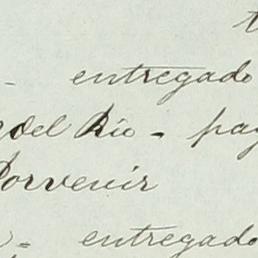 - entregado
del Rio - pag
Porvenir
- entregado